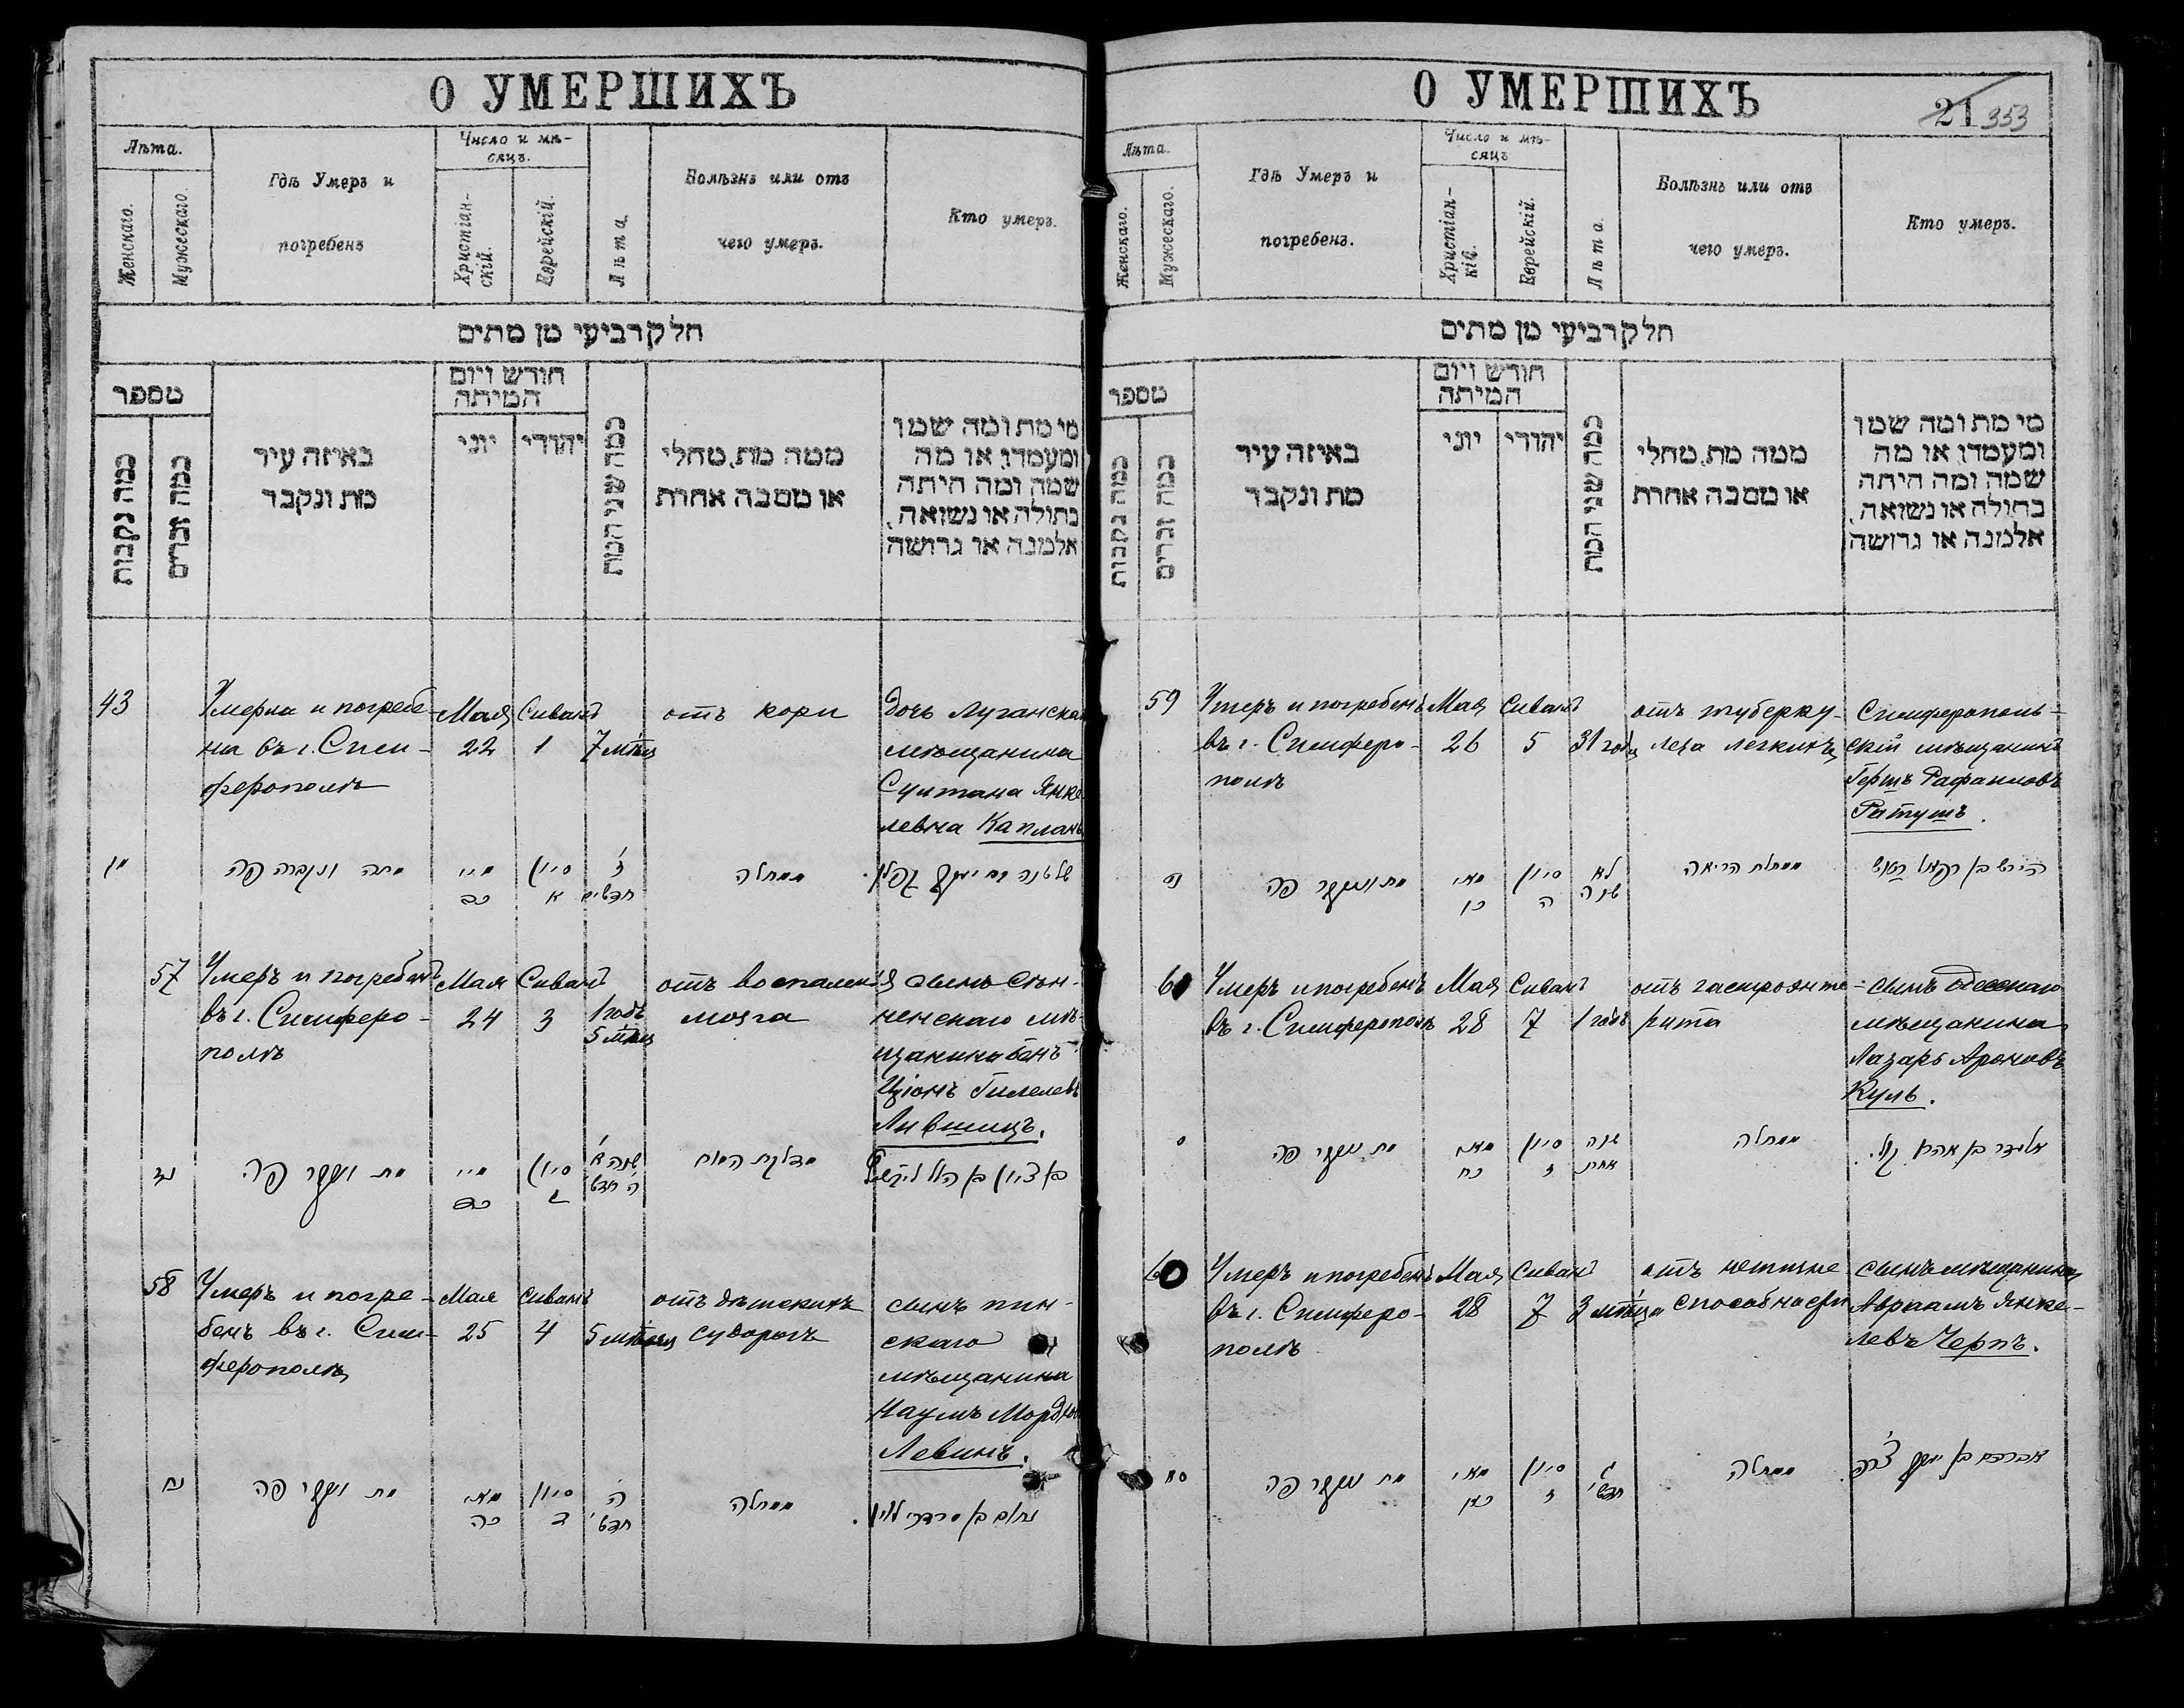 О УМЕРШИХЪ
Лѣта.
Женскаго.
Мужескаго.
Гдѣ Умеръ и
погребенъ
Число и мѣ-
сяцъ.
Христіан-
скій.
Еврейскій.
Лѣта.
Болѣзнь или отъ
чего умеръ.
Кто умеръ.
חלק רביעי מן מתים
מספר
כמה נקבות
כמה זכרים
באיזה עיר
מת ונקבר
חודש ויום
המיתה
יוני
יהודי
כמה שני המת
ממה מת, מחלי
או מסבה אחרת
מי מת ומה שמו
ומעמדו, או מה
שמה ומה היתה
בתולה או נשואה,
אלמנה או גרושה
43
Умерла и погребе-
на въ г. Сим-
ферополѣ
Мая
22
Сиванъ
1
7 мѣсяц
отъ кори
дочь Луганска
мѣщанина
Султана Янке
левна Капланъ
מתה ונקברה פה
מיי
כב
סיון
א
ז'
חדשים
ממחלה
57
Умеръ и погребенъ
въ г. Симферо-
полѣ
Мая
24
Сиванъ
3
1 годъ
5 мѣсяц
отъ воспаленія
мозга
сынъ
мѣ-
щанина Бенъ
Ціонъ Гилелевъ
Лившицъ.
נז
מת ונקבר פה
מיי
סיון
ג
שנה א'
ה' חדש'
מדלקת המוח
בן ציון בן הלל ליפשיץ
58
Умеръ и погре-
бенъ въ г. Сим-
ферополѣ
Мая
25
Сиванъ
4
5 мѣсяц
отъ дѣтскихъ
судорогъ
сынъ пин-
скаго
мѣщанина
Наумъ Мордхо
Левинъ.
נח
מת ונקבר פה
מאי
כה
סיון
ד
ה'
חדש'
ממחלה
נחום בן מרדכי לוין.
О УМЕРШИХЪ
21 353
Лѣта.
Женскаго.
Мужескаго.
Гдѣ Умеръ и
погребенъ.
Число и мѣ-
сяцъ
Христіан-
кій.
Еврейскій.
Лѣта.
Болѣзнь или отъ
чего умеръ.
Кто умеръ.
חלק רביעי מן מתים
מספר
כמה נקבות
כמה זכרים
באיזה עיר
מת ונקבר
חודש ויום
המיתה
יוני
יהודי
כמה שני המת
ממה מת, מחלי
או מסבה אחרת
מי מת ומה שמו
ומעמדו, או מה
שמה ומה היתה
בתולה או נשואה,
אלמנה או גרושה
59
Умеръ и погребенъ
въ г. Симферо-
полѣ
Мая
26
Сиванъ
5
31 годъ
отъ туберку-
леза легкихъ
Симферополь-
скій мѣщанинъ
Гершъ Рафаиловъ
Ратушъ.
נט
מת ונקבר פה
מאי
כו
סיון
ה
לא
שנה
ממחלת הריאה
הירש בן רפאל ראטוש
60
Умеръ и погребенъ
въ г. Симферополѣ
Мая
28
Сиванъ
7
1 годъ
отъ гастроэнте-
рита
сынъ Одесскаго
мѣщанина
Лазарь Ароновъ
Куль.
ס
מת ונקבר פה
מאי
כח
סיון
ז
שנה
אחת
ממחלה
אליעזר בן אהרן קול.
60
Умеръ и погребенъ
въ г. Симферо-
полѣ
Мая
28
Сиванъ
7
3 мѣсяца
отъ нежизне
способности
сынъ мѣщанина
Авраамъ Янке-
левъ Черпъ.
סא
מת ונקבר פה
מאי
סיון
ז
ג
חדש'
ממחלה
אברהם בן יעקב צ'רפ.